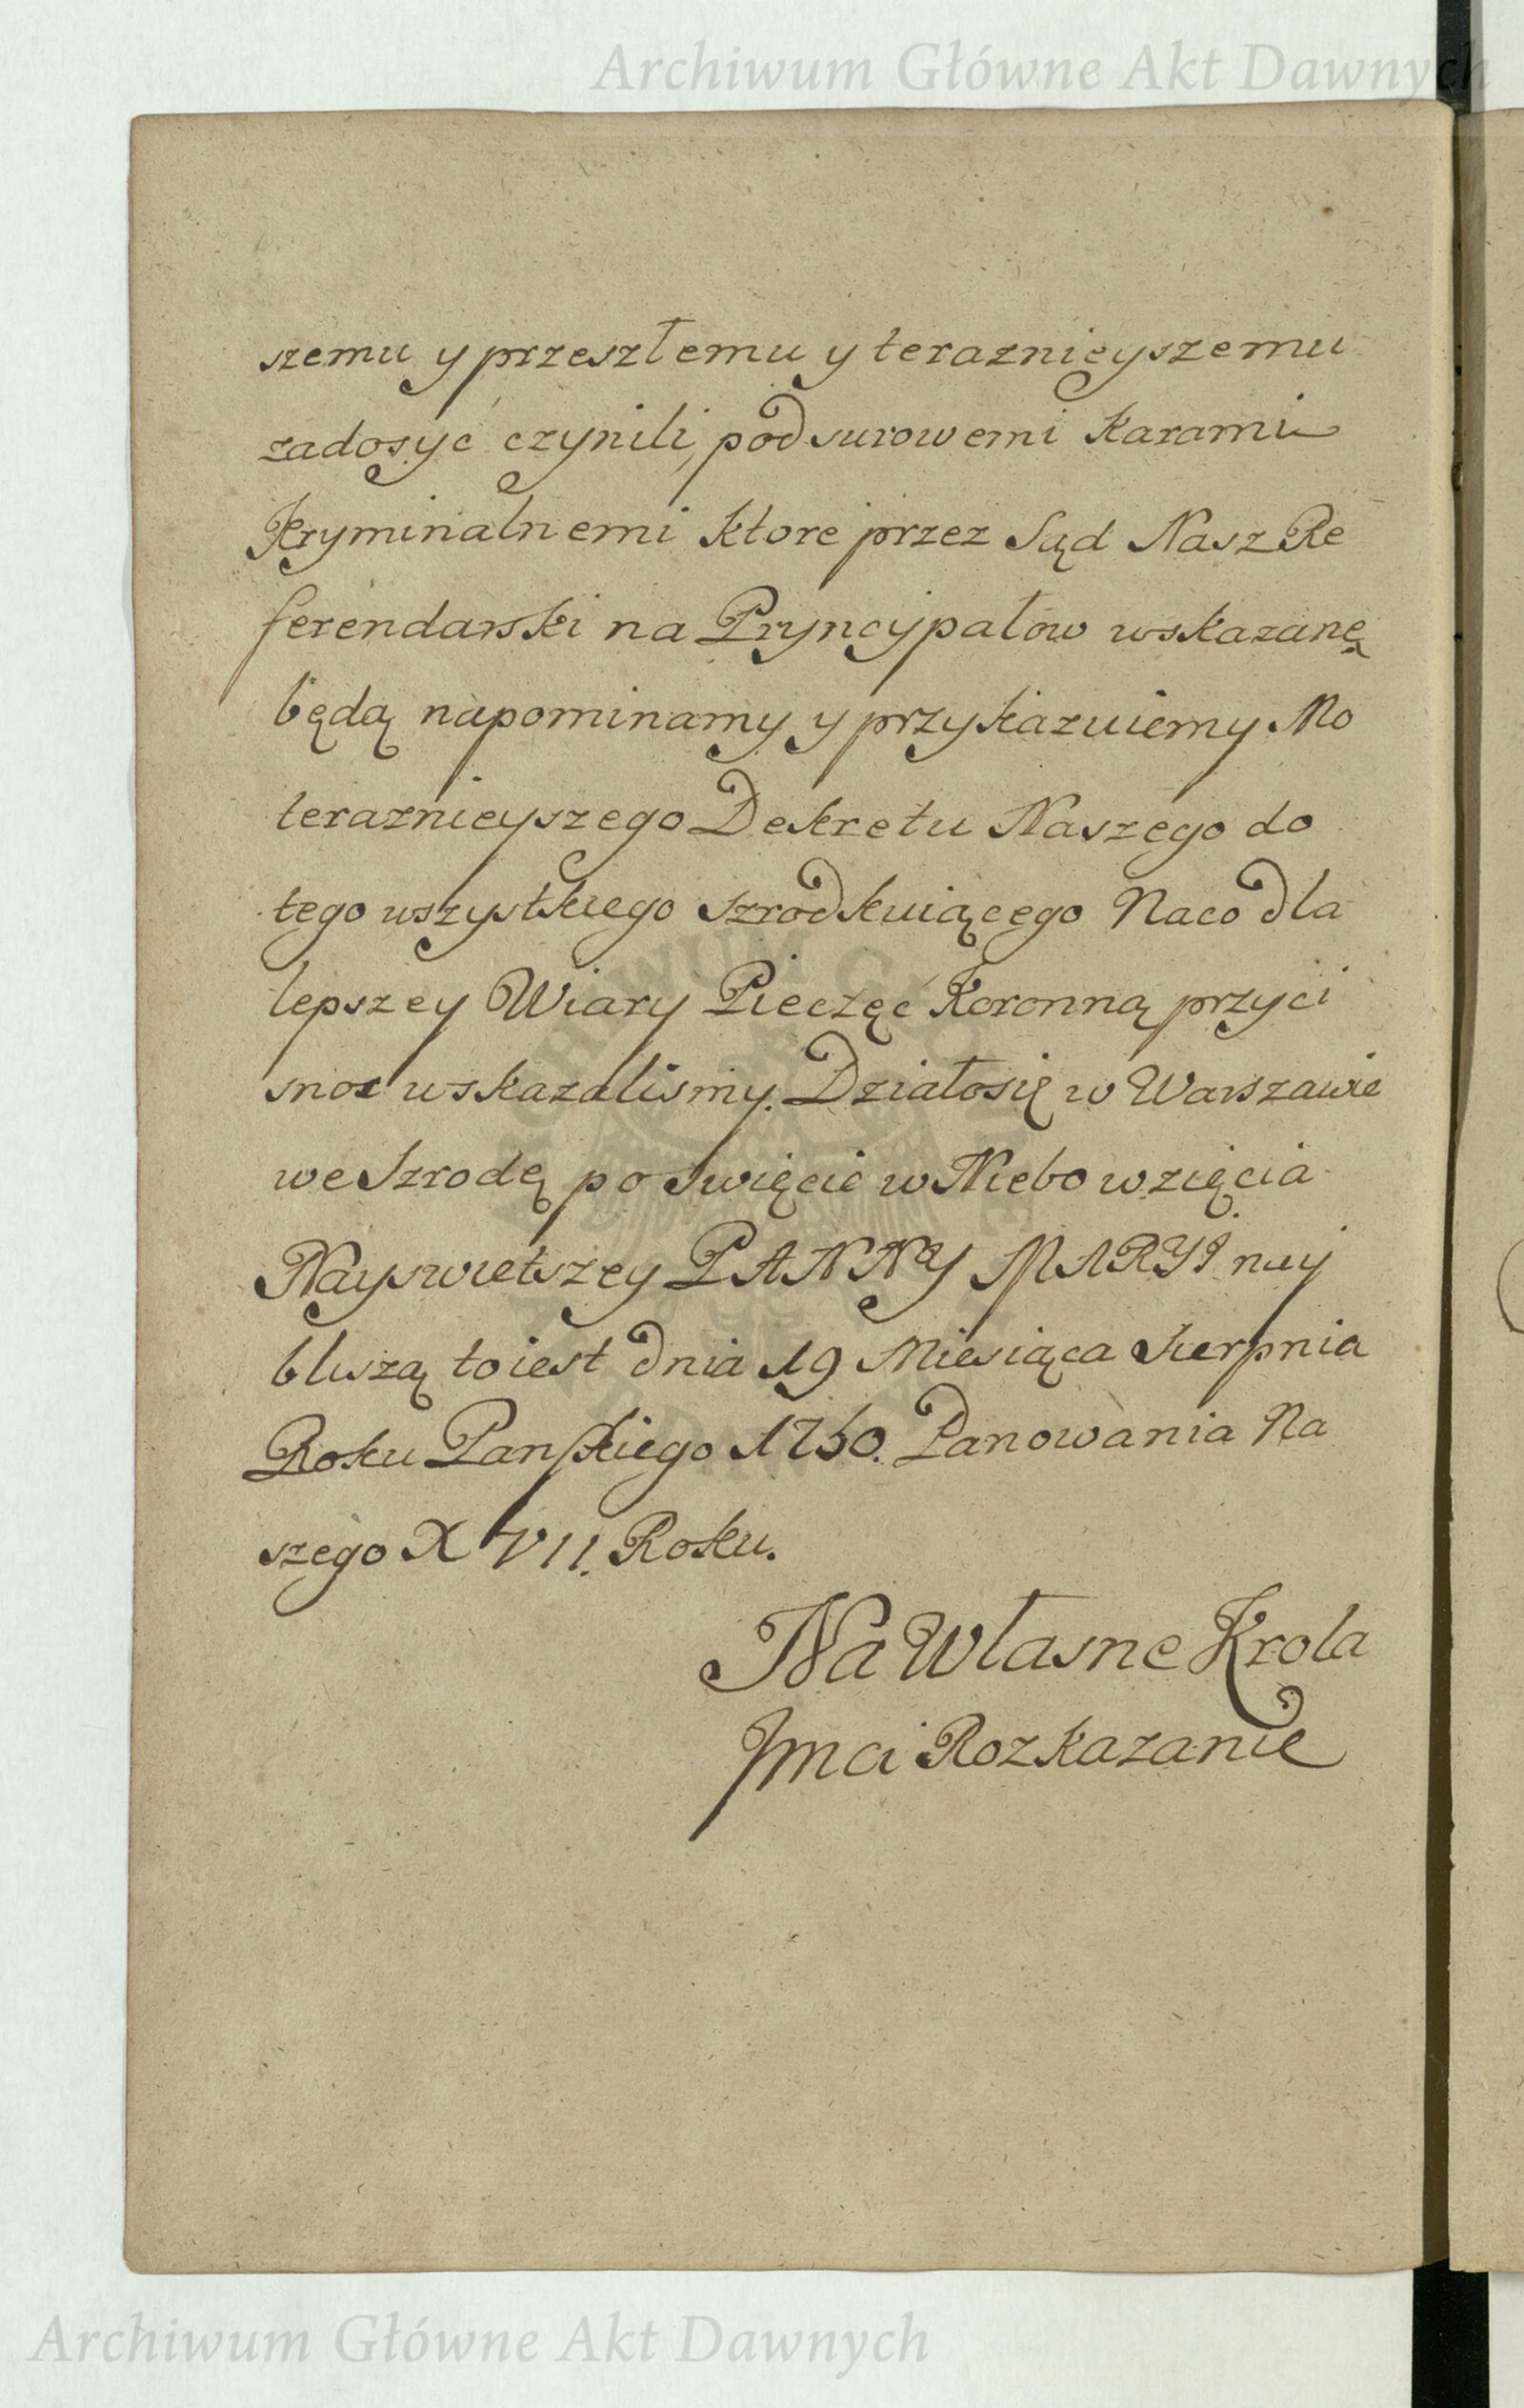 Archiwum Główne Akt Dawnych
szemu y przeszłemu y teraznieyszemu
zadosyć czynili, pod surowemi karami
Kryminalnemi ktore przez Sąd Nasz Re
ferendarski na Pryncypałow wskazane
będą napominamy y przykazuiemy. Mo
teraznieyszego Dekretu Naszego do
tego wszystkiego szrodkuiącego Naco dla
lepszey Wiary Pieczęć Koronną przyci
snoc wskazalismy. Działosię w Warszawie
we Szrodę po Swięcie w Niebo wzięcia
Nayswietszey PANNY MARYI nay
bliszą toiest dnia 19 Miesiąca Sierpnia
Roku Panskiego 1750. Panowania Na
szego XVII. Roku.
Na Własne Krola
Jmci Rozkazanie
Archiwum Główne Akt Dawnych